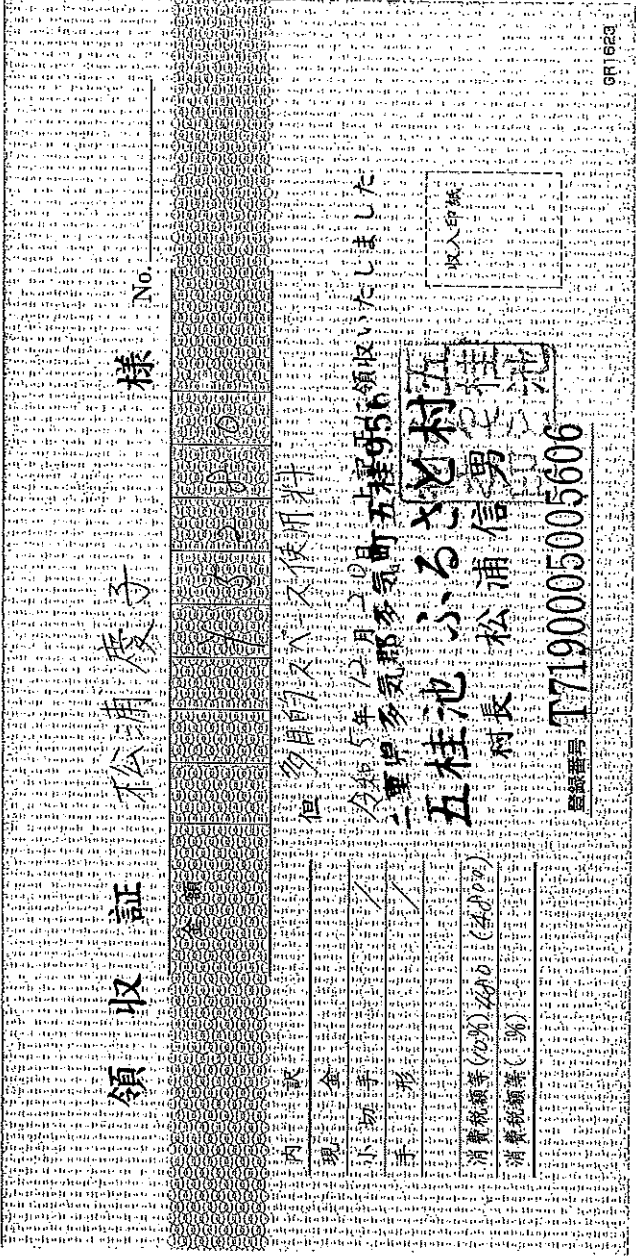 領収証 松浦慶子 様 No.
金額 ¥5280
但 多目的スペース使用料
令和5年12月20日 上記正に領収いたしました
内訳
現金
小切手 /
手形 /
消費税額等(10%) 480 (4800)
消費税額等( %)
三重県多気郡多気町五桂956
五桂池ふるさと村
村長 松浦信男
登録番号 T7190005005606
収入印紙
GR1623